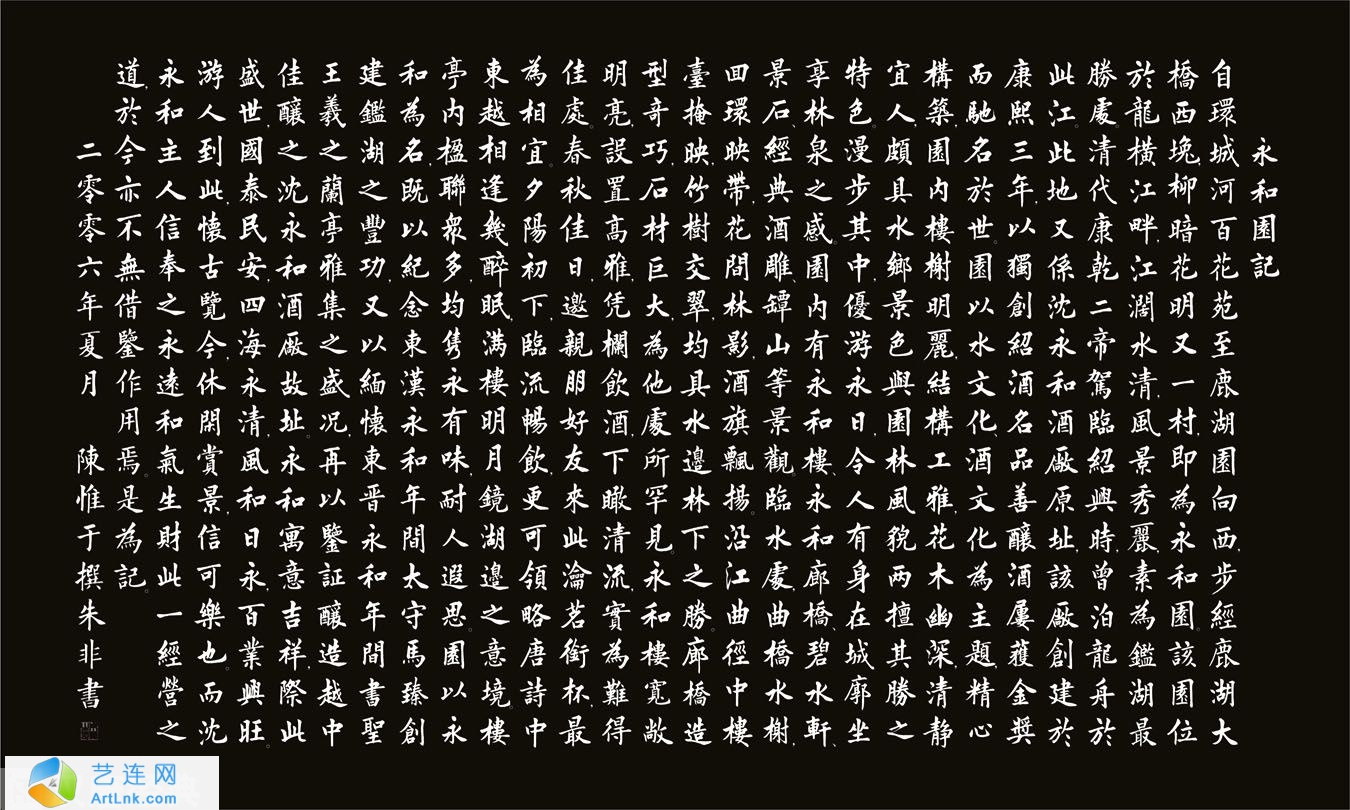 永和園記
自環城河百花苑至鹿湖園向西，步經鹿湖大
橋西堍，柳暗花明又一村，即為永和園。該園位
於龍橫江畔，江濶水清，風景秀麗，素為鑑湖最
勝處。清代康乾二帝駕臨紹興時，曾泊龍舟於
此江。此地又係沈永和酒廠原址，該廠創建於
康熙三年，以獨創紹酒名品善釀酒屢獲金獎
而馳名於世。園以水文化、酒文化為主題，精心
構築，園內樓榭明麗，結構工雅，花木幽深，清静
宜人，頗具水鄉景色與園林風貌兩擅其勝之
特色。漫步其中，優游永日，令人有身在城廓坐
享林泉之感。園內有永和樓、永和廊橋、碧水軒、
景石、經典酒雕、罈山等景觀。臨水處曲橋水榭，
回環映帶，花間林影，酒旗飄揚。沿江曲徑中樓
臺掩映，竹樹交翠，均具水邊林下之勝。廊橋造
型奇巧，石材巨大，為他處所罕見。永和樓寬敞
明亮，設置高雅，凭欄飲酒，下瞰清流，實為難得
佳處。春秋佳日，邀親朋好友來此瀹茗銜杯，最
為相宜。夕陽初下，臨流暢飲，更可領略唐詩中
東越相逢幾醉眠，滿樓明月鏡湖邊之意境。樓
亭內楹聯衆多，均雋永有味，耐人遐思。園以永
和為名，既以紀念東漢永和年間太守馬臻創
建鑑湖之豐功，又以緬懷東晉永和年間書聖
王羲之蘭亭雅集之盛况，再以鑒証釀造越中
佳釀之沈永和酒廠故址。永和寓意吉祥，際此
盛世，國泰民安，四海永清，風和日永，百業興旺。
游人到此，懷古覽今，休閑賞景，信可樂也。而沈
永和主人信奉之永遠和氣生財此一經營之
道，於今亦不無借鑒作用焉。是為記。
二零零六年夏月 陳惟于撰朱非書
艺连网
ArtLnk.com